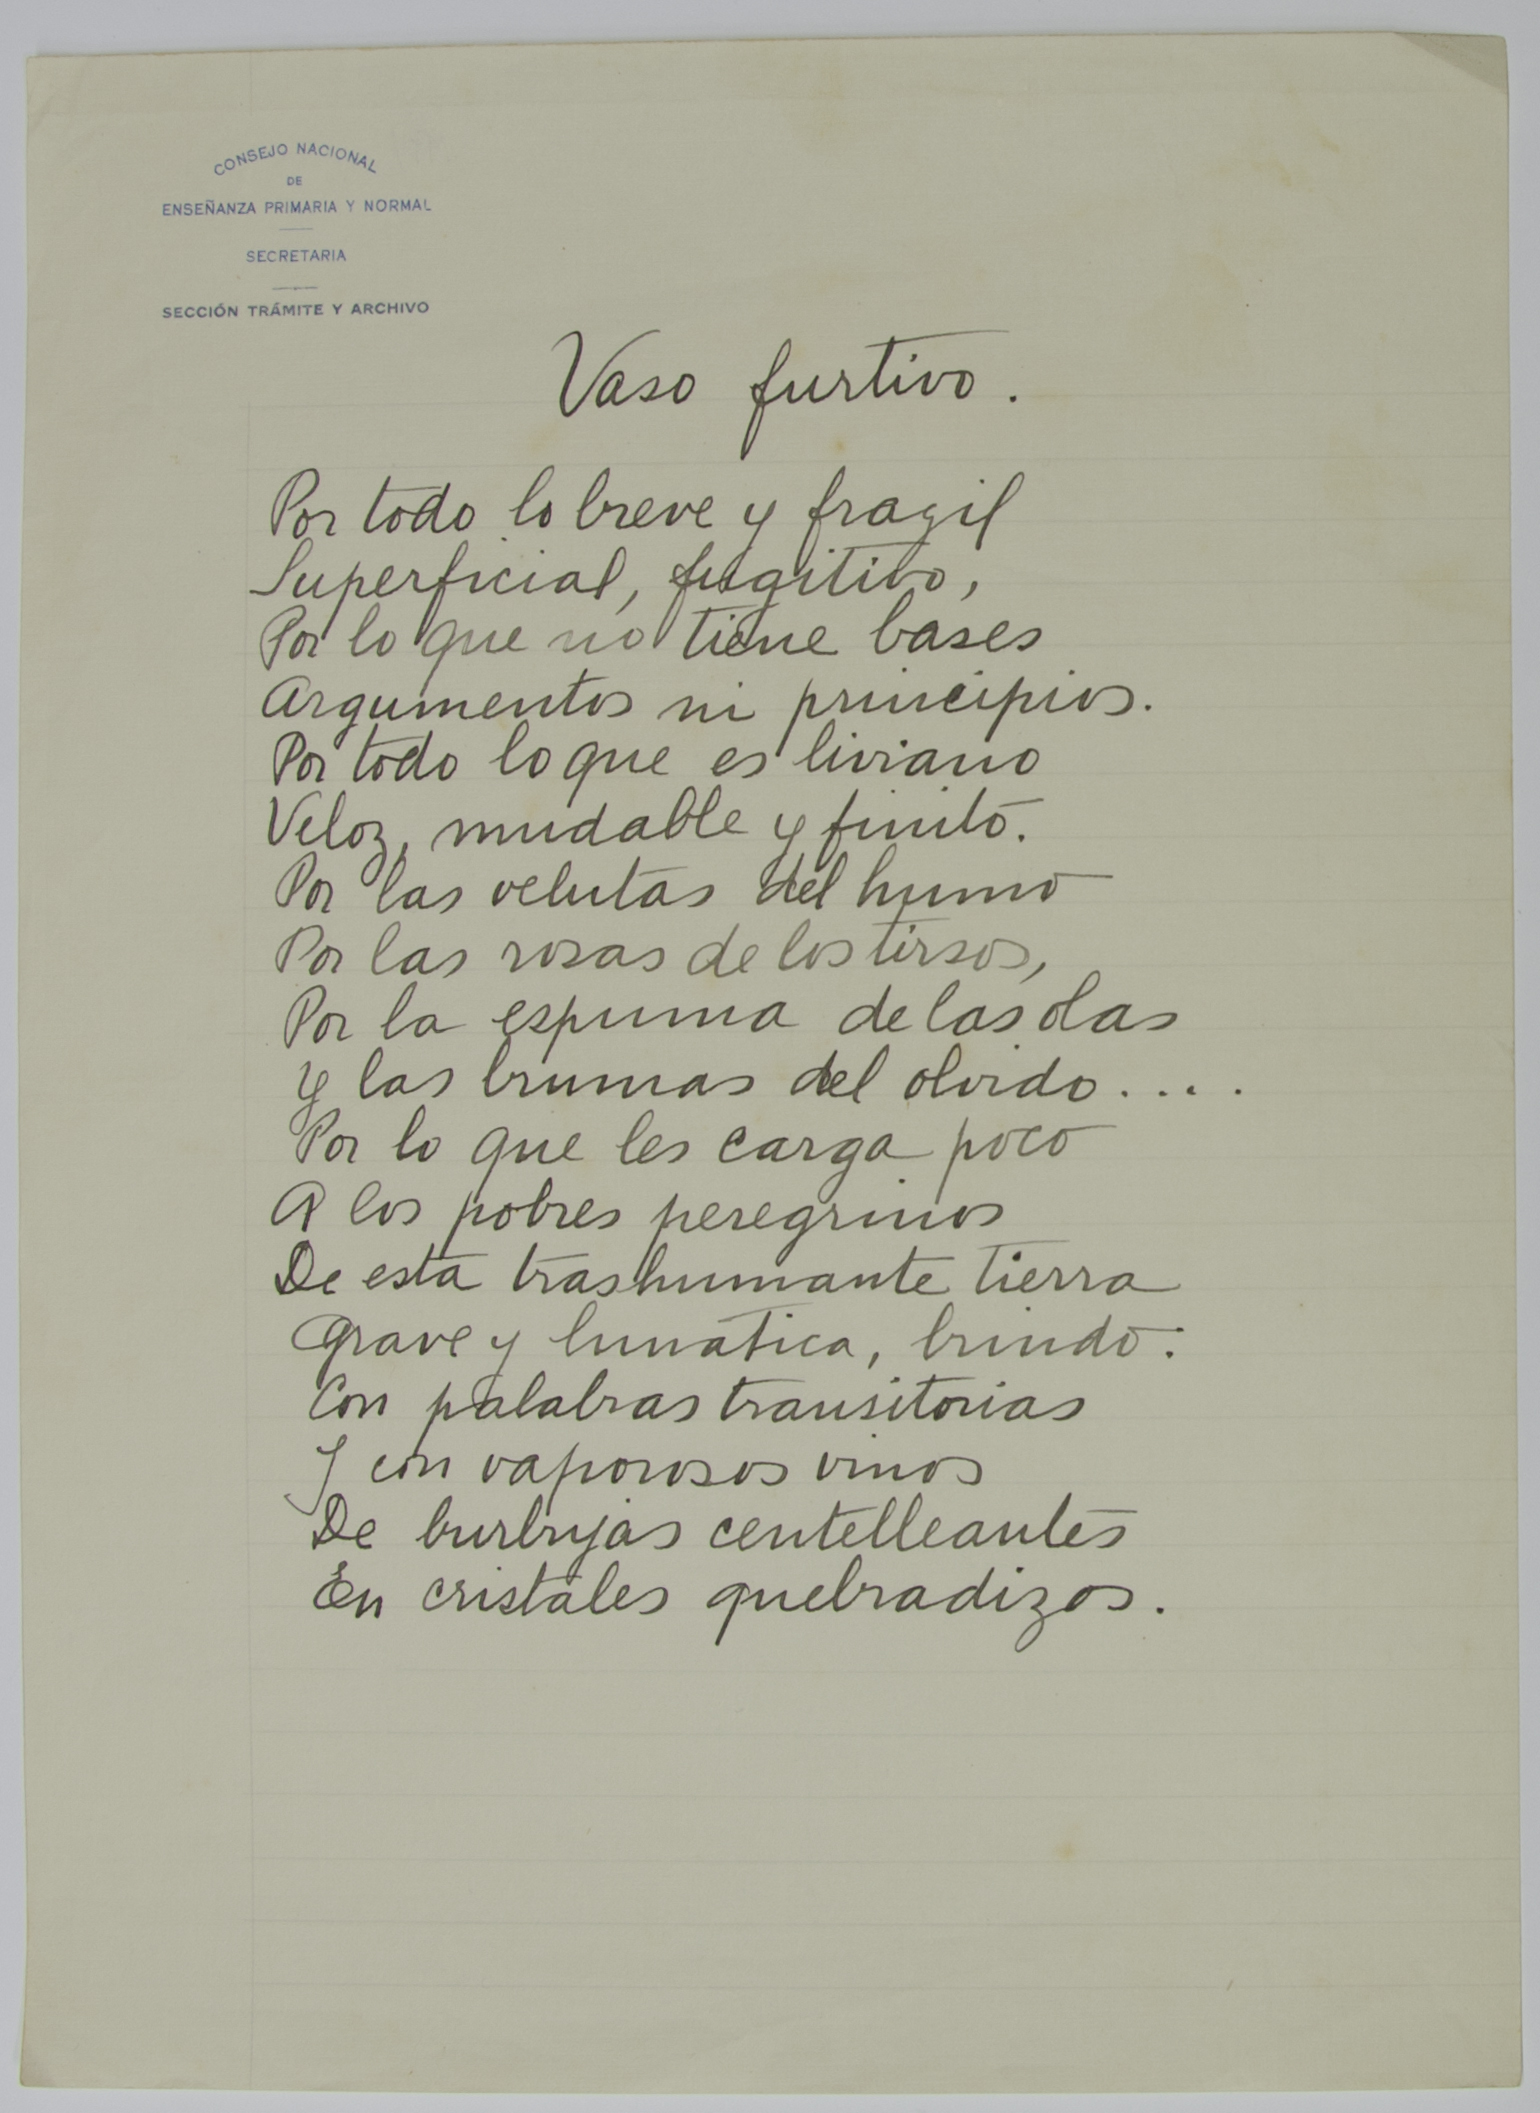 CONSEJO NACIONAL
DE
ENSEÑANZA PRIMARIA Y NORMAL
SECRETARIA
SECCIÓN TRÁMITE Y ARCHIVO
Vaso furtivo.
Por todo lo breve y fragil
Superficial, fugitivo,
Por lo que no tiene bases
Argumentos ni principios.
Por todo lo que es liviano
Veloz, mudable y finito.
Por las velutas del humo
Por las rosas de los tirsos,
Por la espuma de las olas
Y las brumas del olvido....
Por lo que les carga poco
A los pobres peregrinos
De esta trashumante tierra
Grave y lunática, brindo:
Con palabras transitorias
Y con vaporosos vinos
De burbujas centelleantes
En cristales quebradizos.